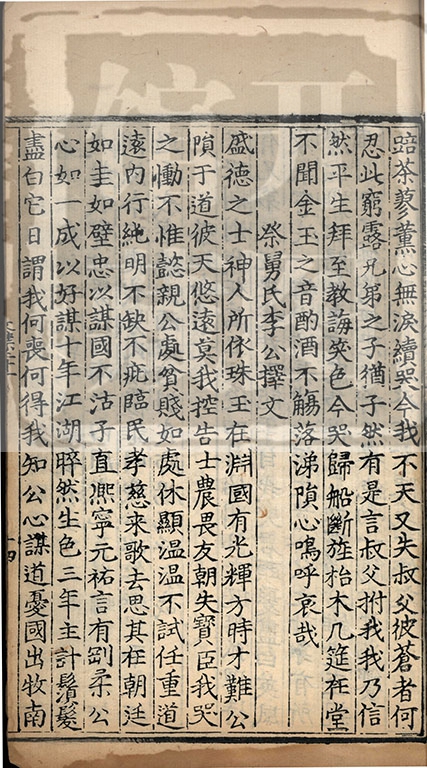 踣荼蓼薰心無淚續哭今我不天又失叔父彼蒼者何
忍此窮露兄弟之子猶子然有是言叔父拊我我乃信
然平生拜至教誨笑色今哭歸船斷旌枱木几筵在堂
不聞金玉之音酌酒不觴落涕隕心嗚呼哀哉
祭舅氏李公擇文
盛德之士神人所依珠玉在淵國有光輝方時才難公
隕于道彼天悠遠莫我控告士農畏友朝失寶臣我哭
之慟不惟懿親公處貧賤如處休顯溫溫不試任重道
遠內行純明不缺不疵臨民孝慈来歌去思其在朝廷
如圭如璧忠以謀國不沽子直凞寧元祐言有剛柔公
心如一成以好謀十年江湖睟然生色三年主計鬚髮
盡白它日謂我何喪何得我知公心謀道憂國出牧南
十四